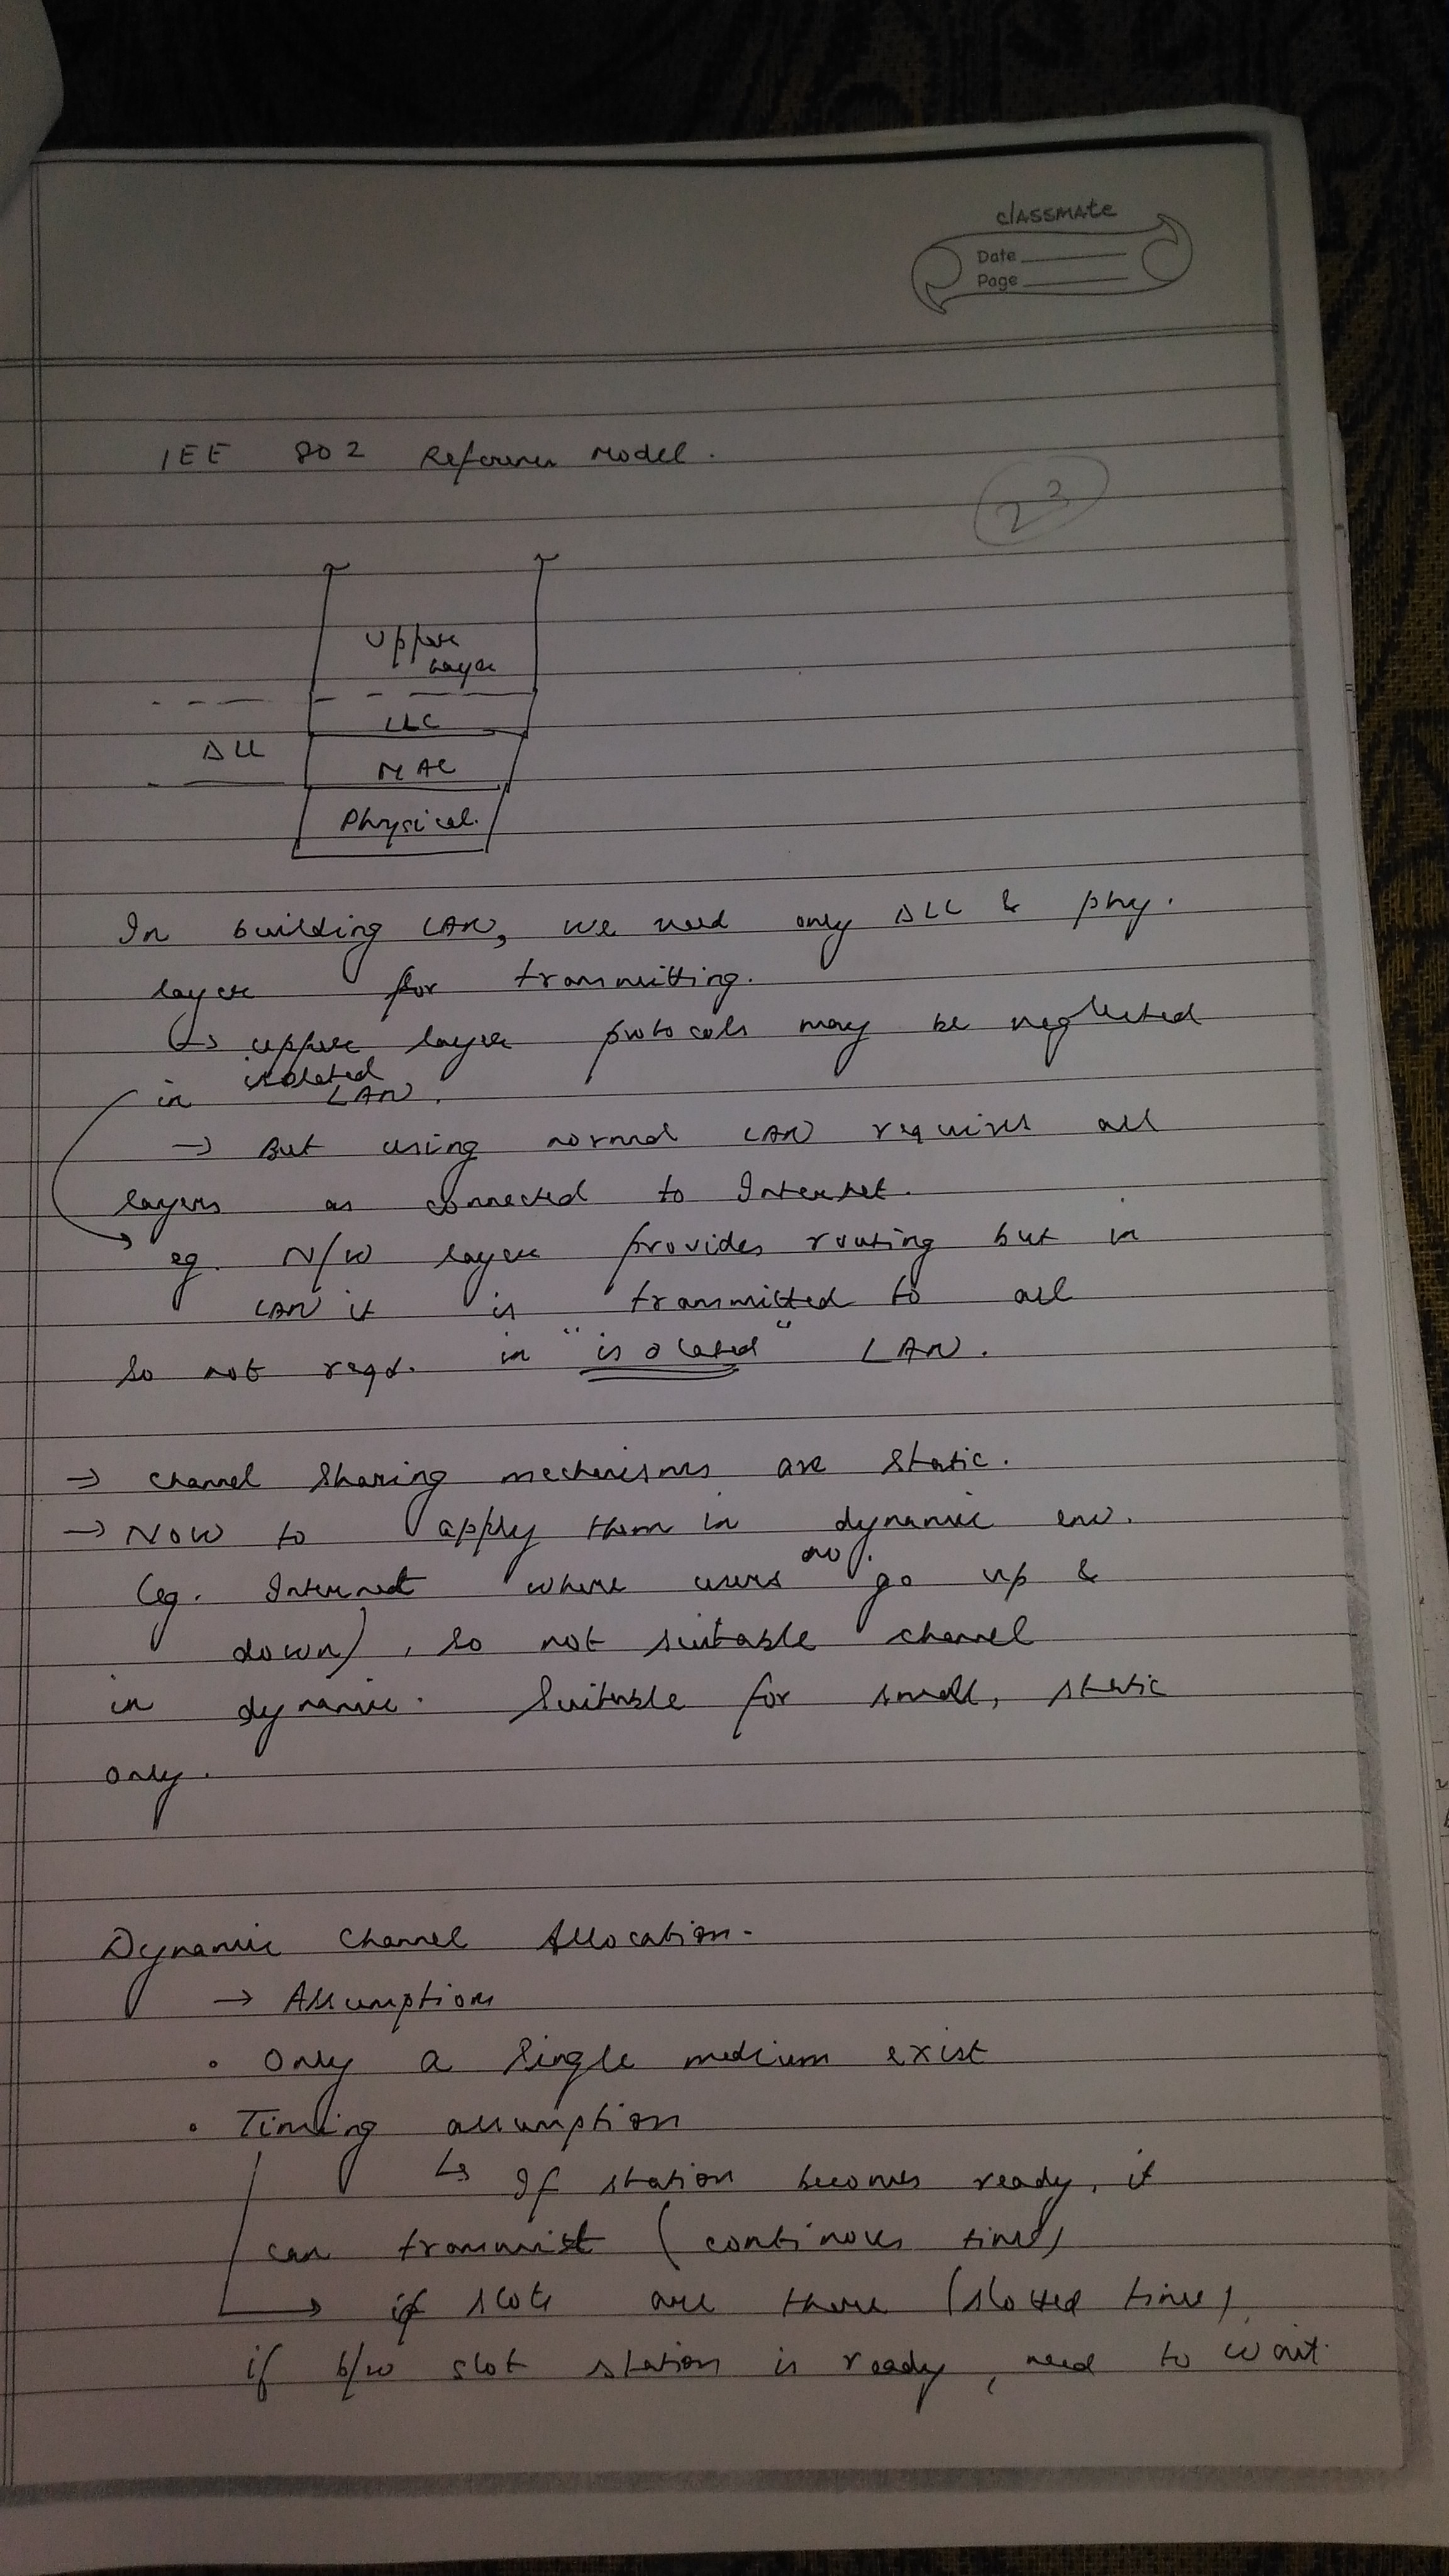 classmate
Date
Page
IEE 802 Reference Model.
23
Upper
Layer
LLC
DLL
MAC
Physical.
In building LAN, we need only DLL & phy.
layer for transmitting.
↳ upper layer protocols may be neglected
in isolated LAN.
→ But using normal LAN requires all
layers as connected to Internet.
eg. N/W layer provides routing but in
LAN it is transmitted to all
so not reqd. in "isolated" LAN.
→ Channel Sharing mechanisms are static.
→ Now to apply them in dynamic env.
(eg. Internet where users no. go up &
down), so not suitable channel
in dynamic. Suitable for small, static
only.
Dynamic Channel Allocation.
→ Assumptions
• Only a single medium exist
• Timing assumption
↳ If station becomes ready, it
can transmit (continous time)
→ if slots are there (slotted time)
if b/w slot station is ready, need to wait.